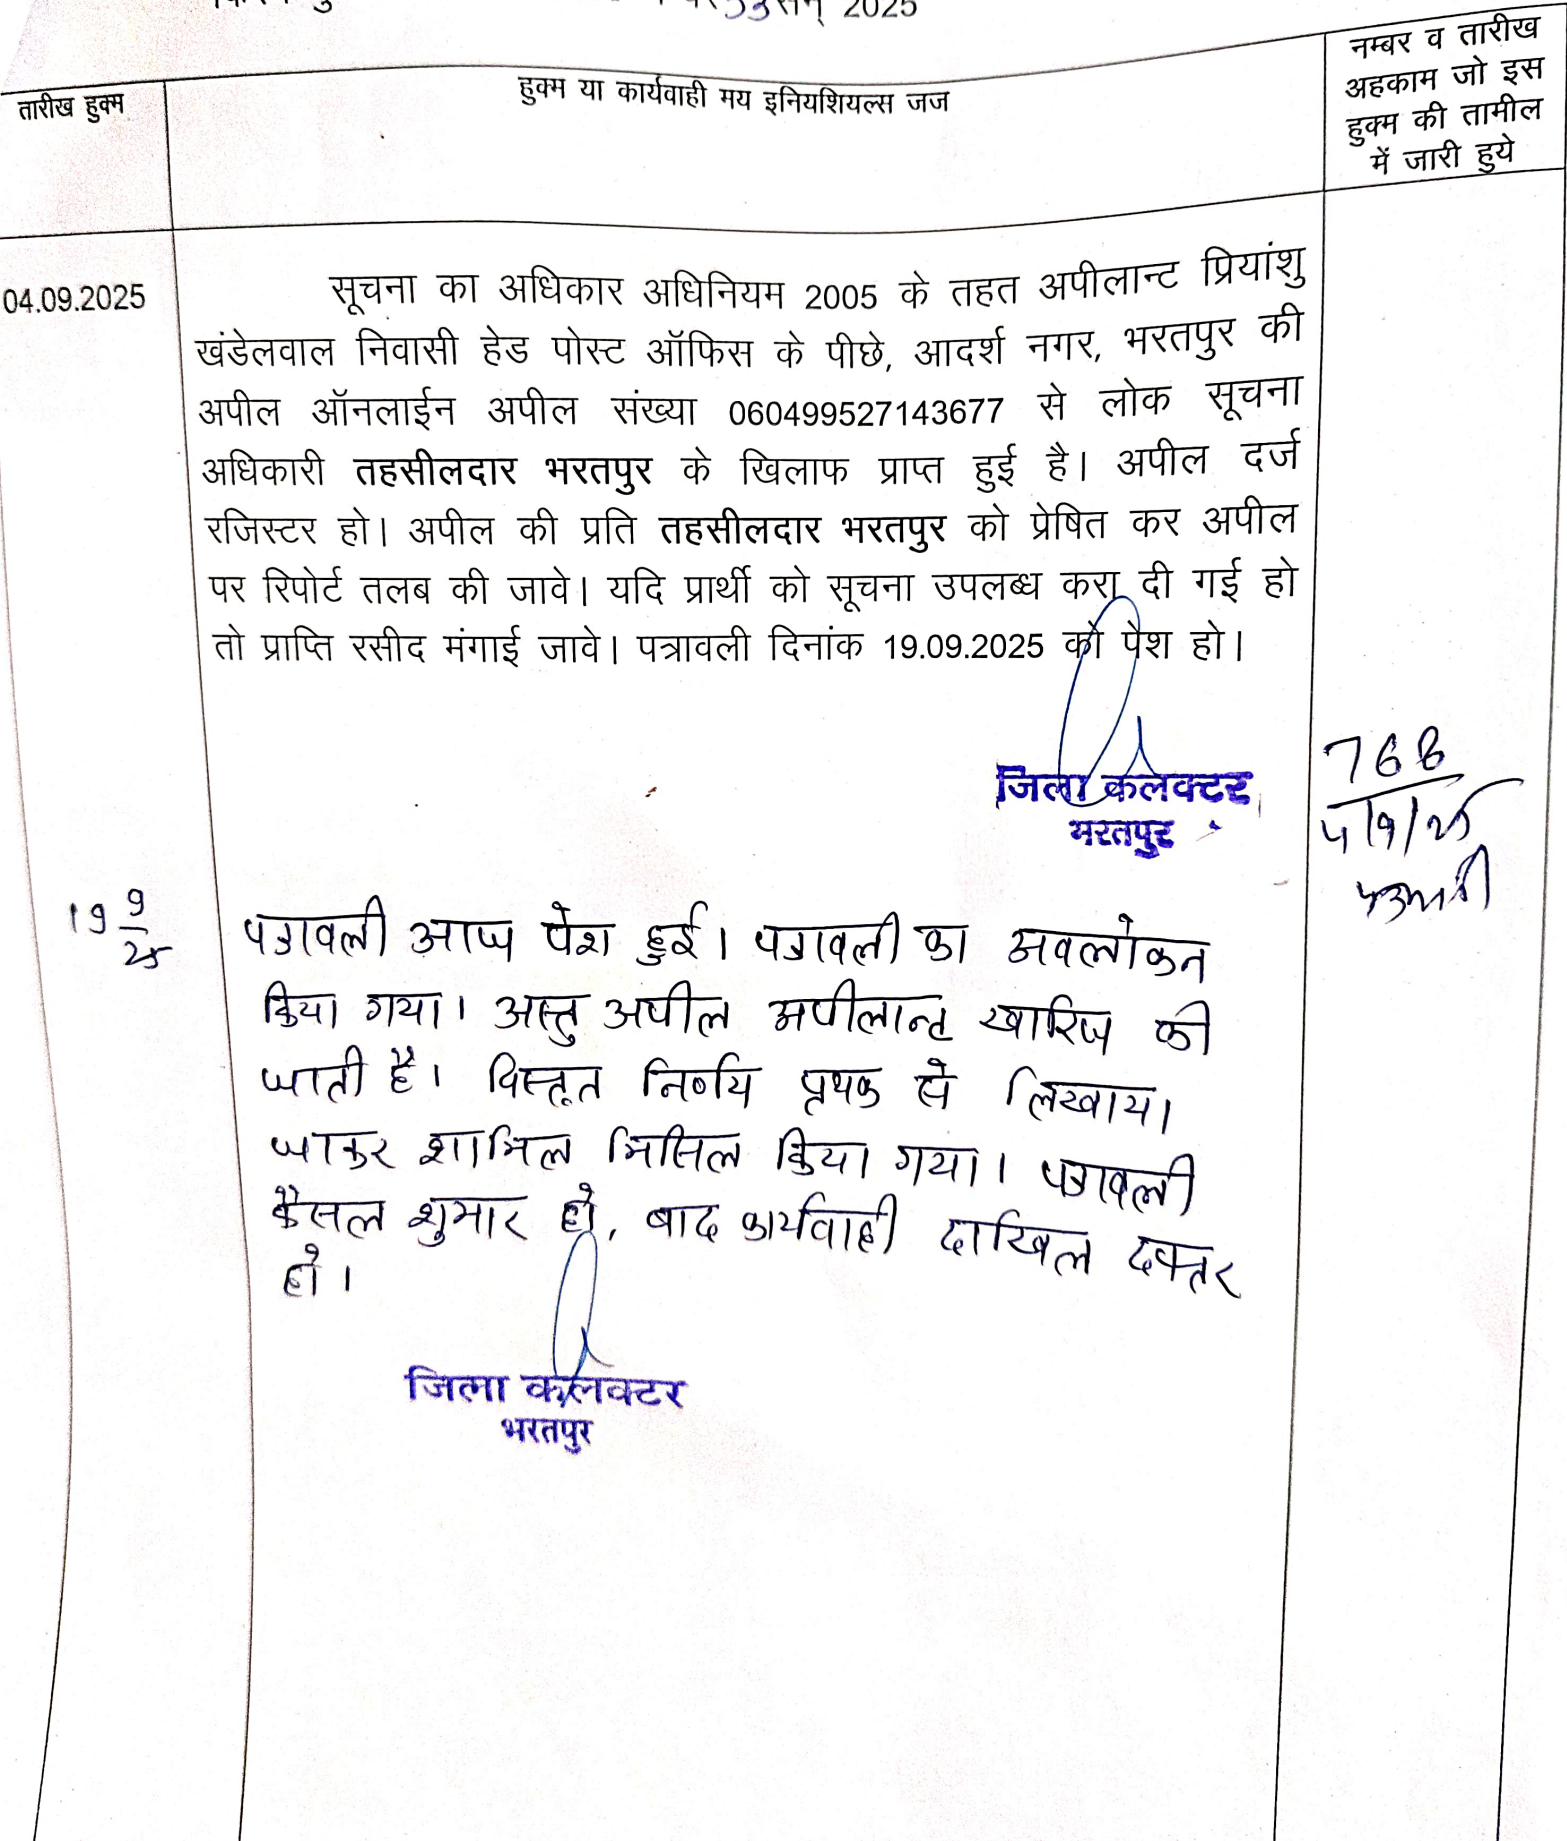 सन् 2025
तारीख हुक्म
हुक्म या कार्यवाही मय इनियशियल्स जज
नम्बर व तारीख
अहकाम जो इस
हुक्म की तामील
में जारी हुये
04.09.2025
सूचना का अधिकार अधिनियम 2005 के तहत अपीलान्ट प्रियांशु
खंडेलवाल निवासी हेड पोस्ट ऑफिस के पीछे, आदर्श नगर, भरतपुर की
अपील ऑनलाईन अपील संख्या 060499527143677 से लोक सूचना
अधिकारी तहसीलदार भरतपुर के खिलाफ प्राप्त हुई है। अपील दर्ज
रजिस्टर हो। अपील की प्रति तहसीलदार भरतपुर को प्रेषित कर अपील
पर रिपोर्ट तलब की जावे। यदि प्रार्थी को सूचना उपलब्ध करा दी गई हो
तो प्राप्ति रसीद मंगाई जावे। पत्रावली दिनांक 19.09.2025 को पेश हो।
जिला कलक्टर
भरतपुर
768
4/9/25
19 9/25
पत्रावली आज पेश हुई। पत्रावली का अवलोकन
किया गया। अस्तु अपील अपीलान्ट खारिज की
जाती है। विस्तृत निर्णय पृथक से लिखाया
जाकर शामिल मिसिल किया गया। पत्रावली
फैसल शुमार हो, बाद कार्यवाही दाखिल दफ्तर
हो।
जिला कलक्टर
भरतपुर